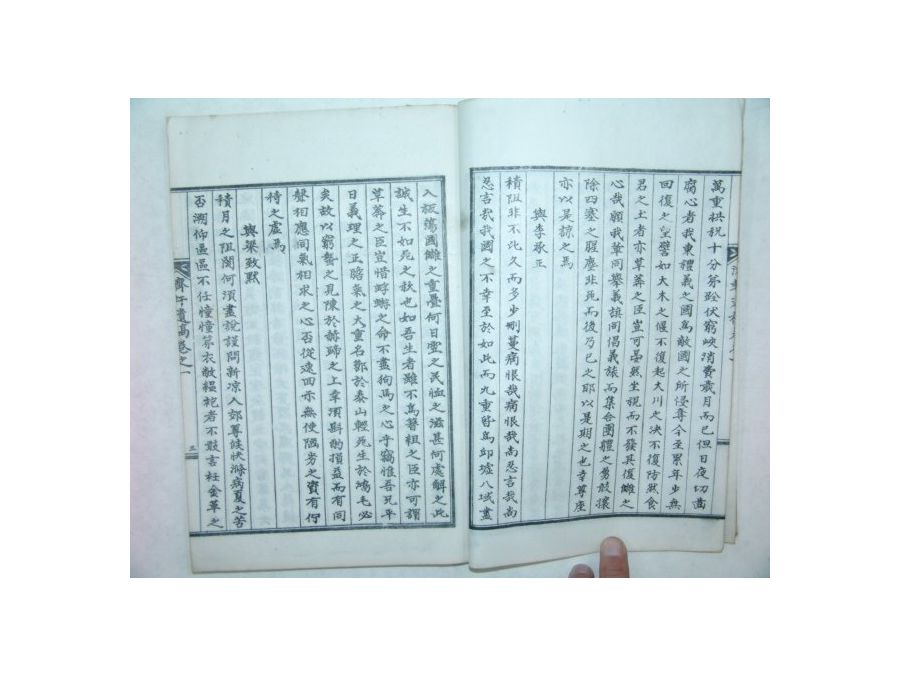 萬重拱祝十分弟蟄伏窮峽消費歲月而已但日夜切齒
腐心者我東禮義之國爲敵國之所侵奪今至累年少無
回復之望譬如大木之偃不復起大川之決不復防然食
君之土者亦草莽之臣豈可晏然坐視而不發其復讎之
心哉願我輩同擧義旗同倡義旅而集合團體之勇敢攘
除四塞之腥塵非死而後乃已之耶以是期之也幸尊座
亦以是諒之焉
與李敬正
積阻非不此久而多步刪蔓痛恨哉痛恨哉尚忍言哉尚
忍言哉我國之不幸至於如此而九重皆爲邱墟八域盡
入板蕩國讎之重疊何日雪之民恤之滋甚何處解之此
誠生不如死之秋也如吾生者雖不爲簪組之臣亦可謂
草莽之臣豈惜蜉蝣之命不盡狗馬之心乎竊惟吾兄平
日義理之正膽氣之大重名節於泰山輕死生於鴻毛必
矣故以窮蟄之見陳於赫蹄之上幸須斟酌損益而有同
聲相應同氣相求之心否從速回示無使隅劣之資有佇
待之慮焉
與梁致默
積月之阻閡何須盡說謹問新凉入郊尊候快滌病夏之苦
否溯仰區區不任憧憧弟衣敝縕袍者不敢言衽金革之
齊子遺稿卷之一
三